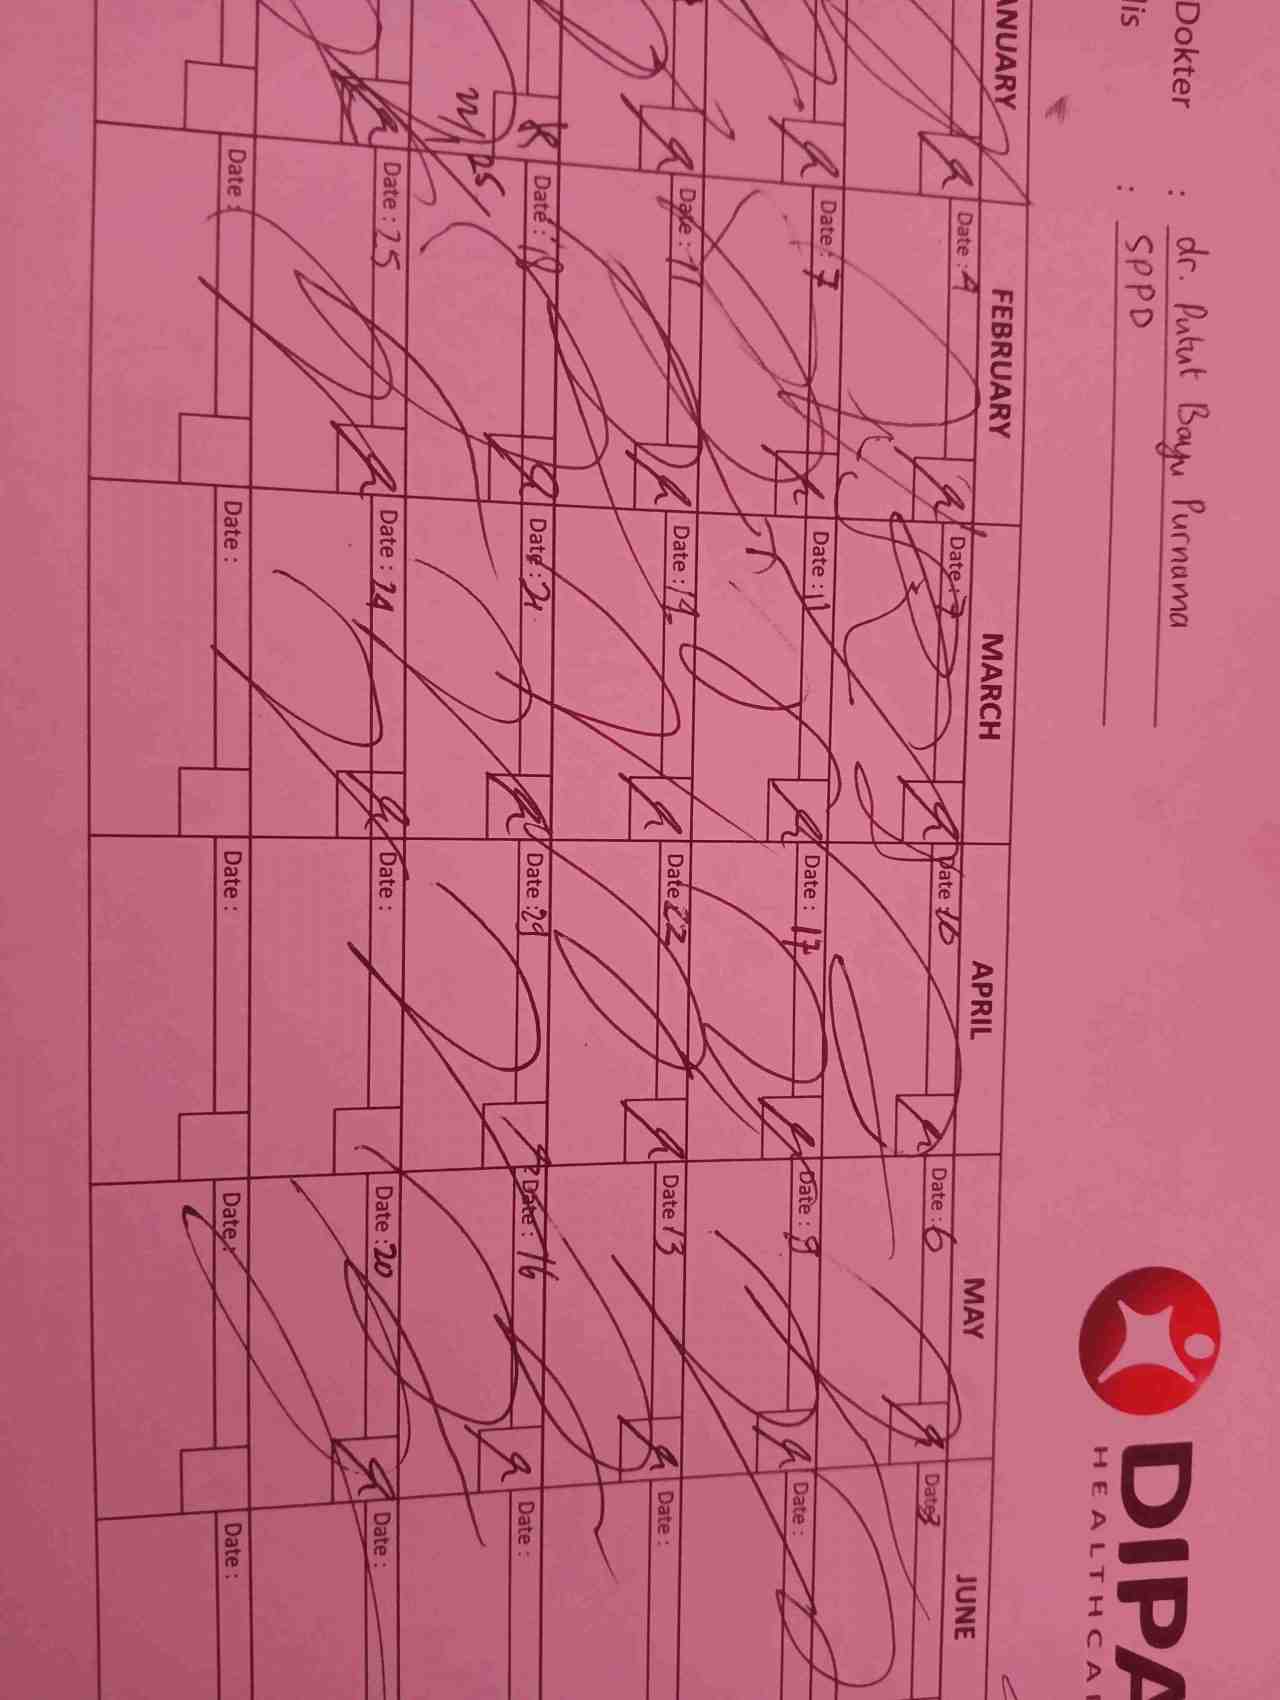 Dokter : dr. Putut Bayu Purnama
lis : SPPD
DIPA
HEALTHCA
ANUARY FEBRUARY MARCH APRIL MAY JUNE
Date : 4 Date : 7 Date : 10 Date : 6 Date : 3
Date : 7 Date : 11 Date : 17 Date : 9 Date :
Date : 11 Date : 14 Date : 22 Date : 13 Date :
Date : 18 Date : 21 Date : 29 Date : 16 Date :
Date : 25 Date : 24 Date : Date : 20 Date :
Date : Date : Date : Date : Date :